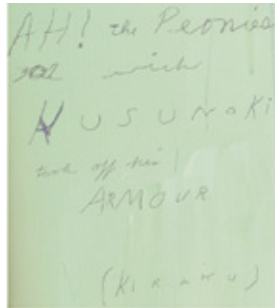 AH! the Peonies
wich
KUSUNOKI
took off his
ARMOUR
(KIKAKU)